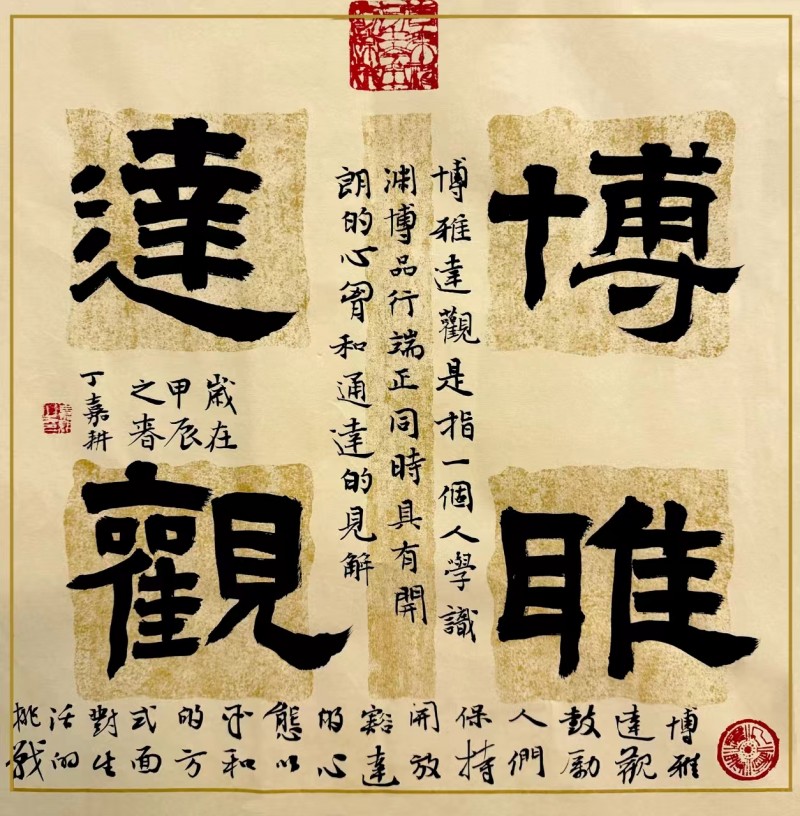 博雅
達觀
博雅達觀是指一個人學識
渊博品行端正同時具有開
朗的心胷和通達的見解
歲在
甲辰
之春
丁嘉耕
博雅
達觀
鼓勵
人們
保持
開放
豁達
的心
態以
平和
的方
式面
對生
活的
挑戰